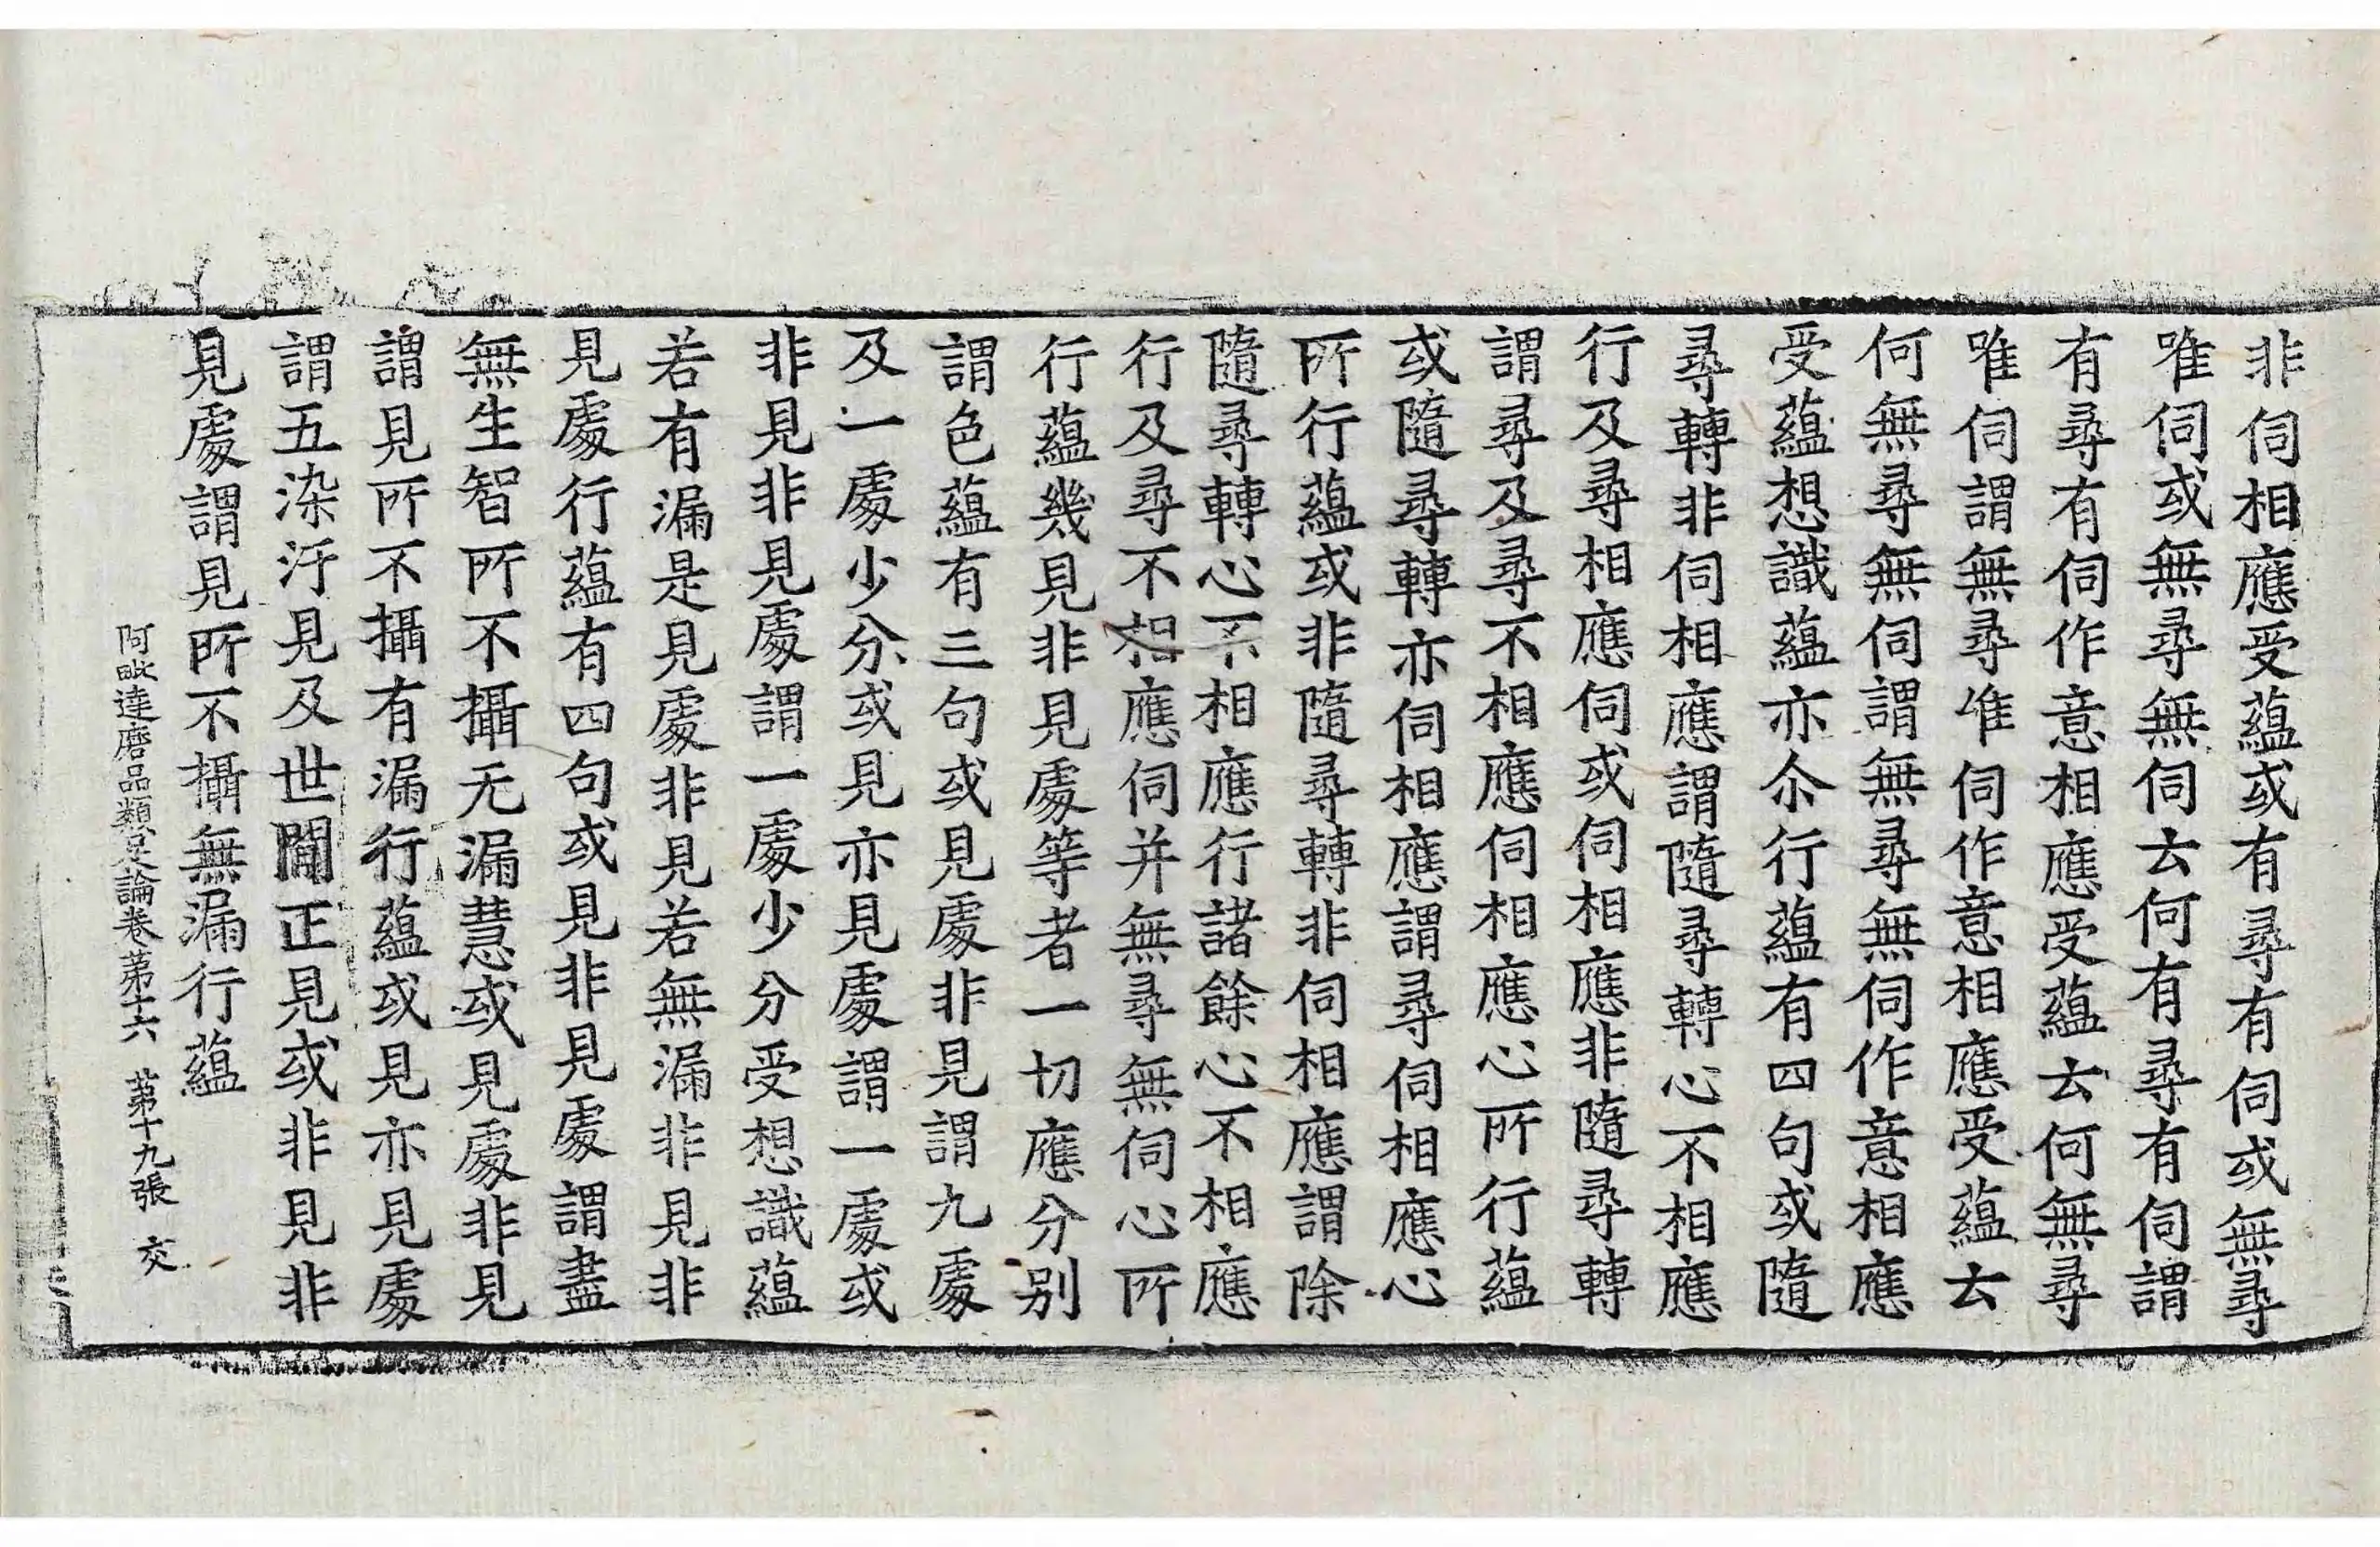 非伺相應受蘊或有尋有伺或無尋
唯伺或無尋無伺云何有尋有伺謂
有尋有伺作意相應受蘊云何無尋
唯伺謂無尋唯伺作意相應受蘊云
何無尋無伺謂無尋無伺作意相應
受蘊想識蘊亦尒行蘊有四句或隨
尋轉非伺相應謂隨尋轉心不相應
行及尋相應伺或伺相應非隨尋轉
謂尋及尋不相應伺相應心所行蘊
或隨尋轉亦伺相應謂尋伺相應心
所行蘊或非隨尋轉非伺相應謂除
隨尋轉心不相應行諸餘心不相應
行及尋不相應伺并無尋無伺心所
行蘊幾見非見處等者一切應分別
謂色蘊有三句或見處非見謂九處
及一處少分或見亦見處謂一處或
非見非見處謂一處少分受想識蘊
若有漏是見處非見若無漏非見非
見處行蘊有四句或見非見處謂盡
無生智所不攝无漏慧或見處非見
謂見所不攝有漏行蘊或見亦見處
謂五染汙見及世閒正見或非見非
見處謂見所不攝無漏行蘊
阿毗達磨品類足論卷第十六 第十九張 交